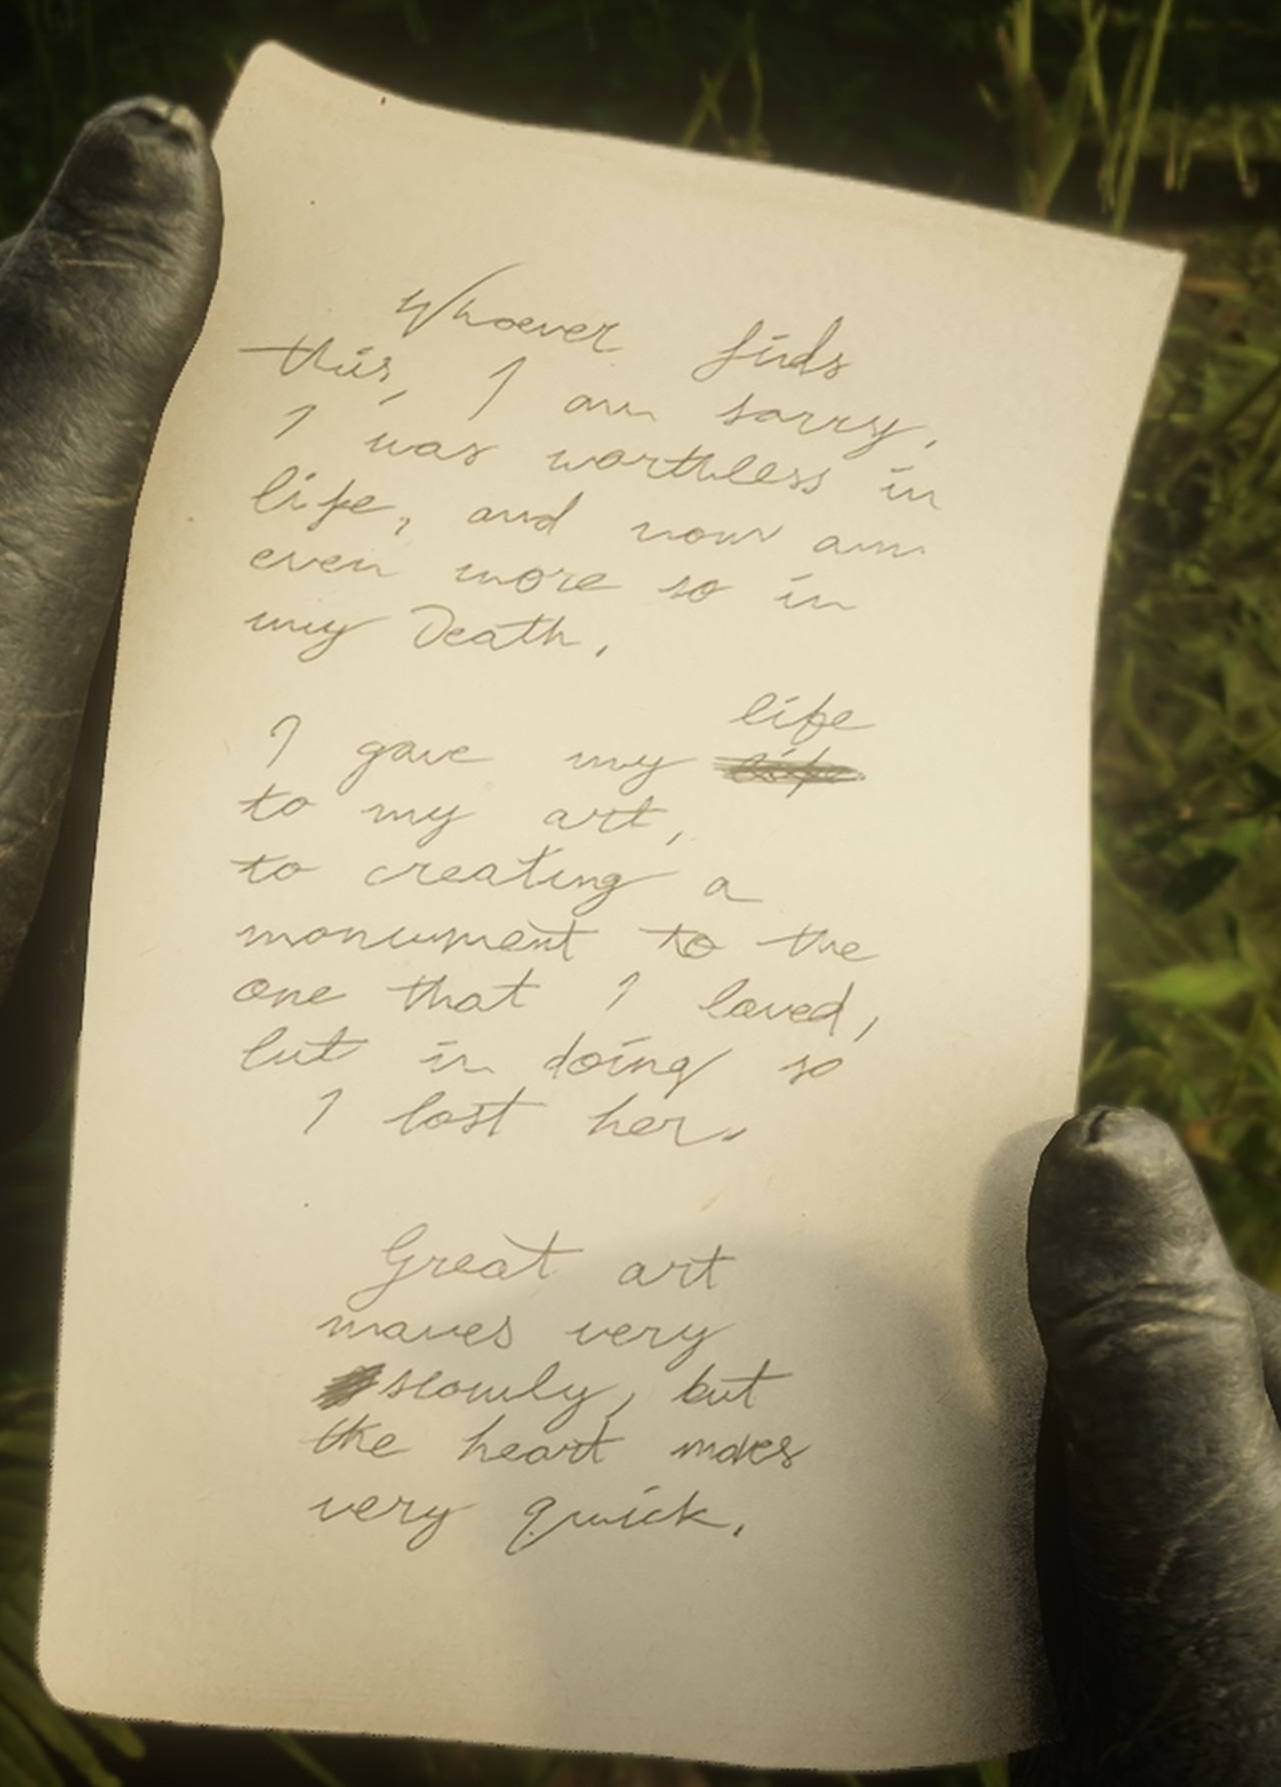 Whoever finds
this, I am sorry.
I was worthless in
life, and now am
even more so in
my Death.
life
I gave my life
to my art,
to creating a
monument to the
one that I loved,
but in doing so
I lost her.
Great art
moves very
slowly, but
the heart moves
very quick.